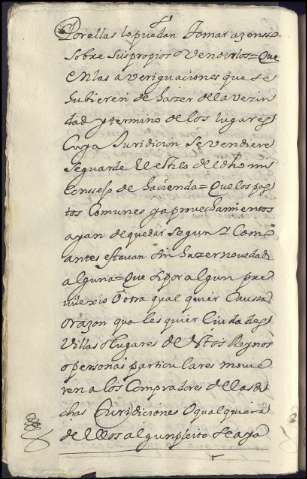 Por ellas lo puedan tomar a zensso
sobre sus propios Vendiendolos = Que
en las averiguaciones que se
hubieren de hazer de la vezin
dad y termino de los lugares
Cuya Juridicion se vendiere
se guarde el estilo del dho mi
Consejo de hacienda = Que los pas
tos Comunes y aprovechamientos
ayan de quedar segun y Como
antes estavan sin hazer novedad
alguna = Que si por algun pre
Otra qual quier Caussa
O razon qua les quier Ciudades
Villas o lugares de estos Reynos
o personas particulares movie
ren a los Compradores de las di
chas Juridiciones O qualquiera
de ellos algun pleito se aya